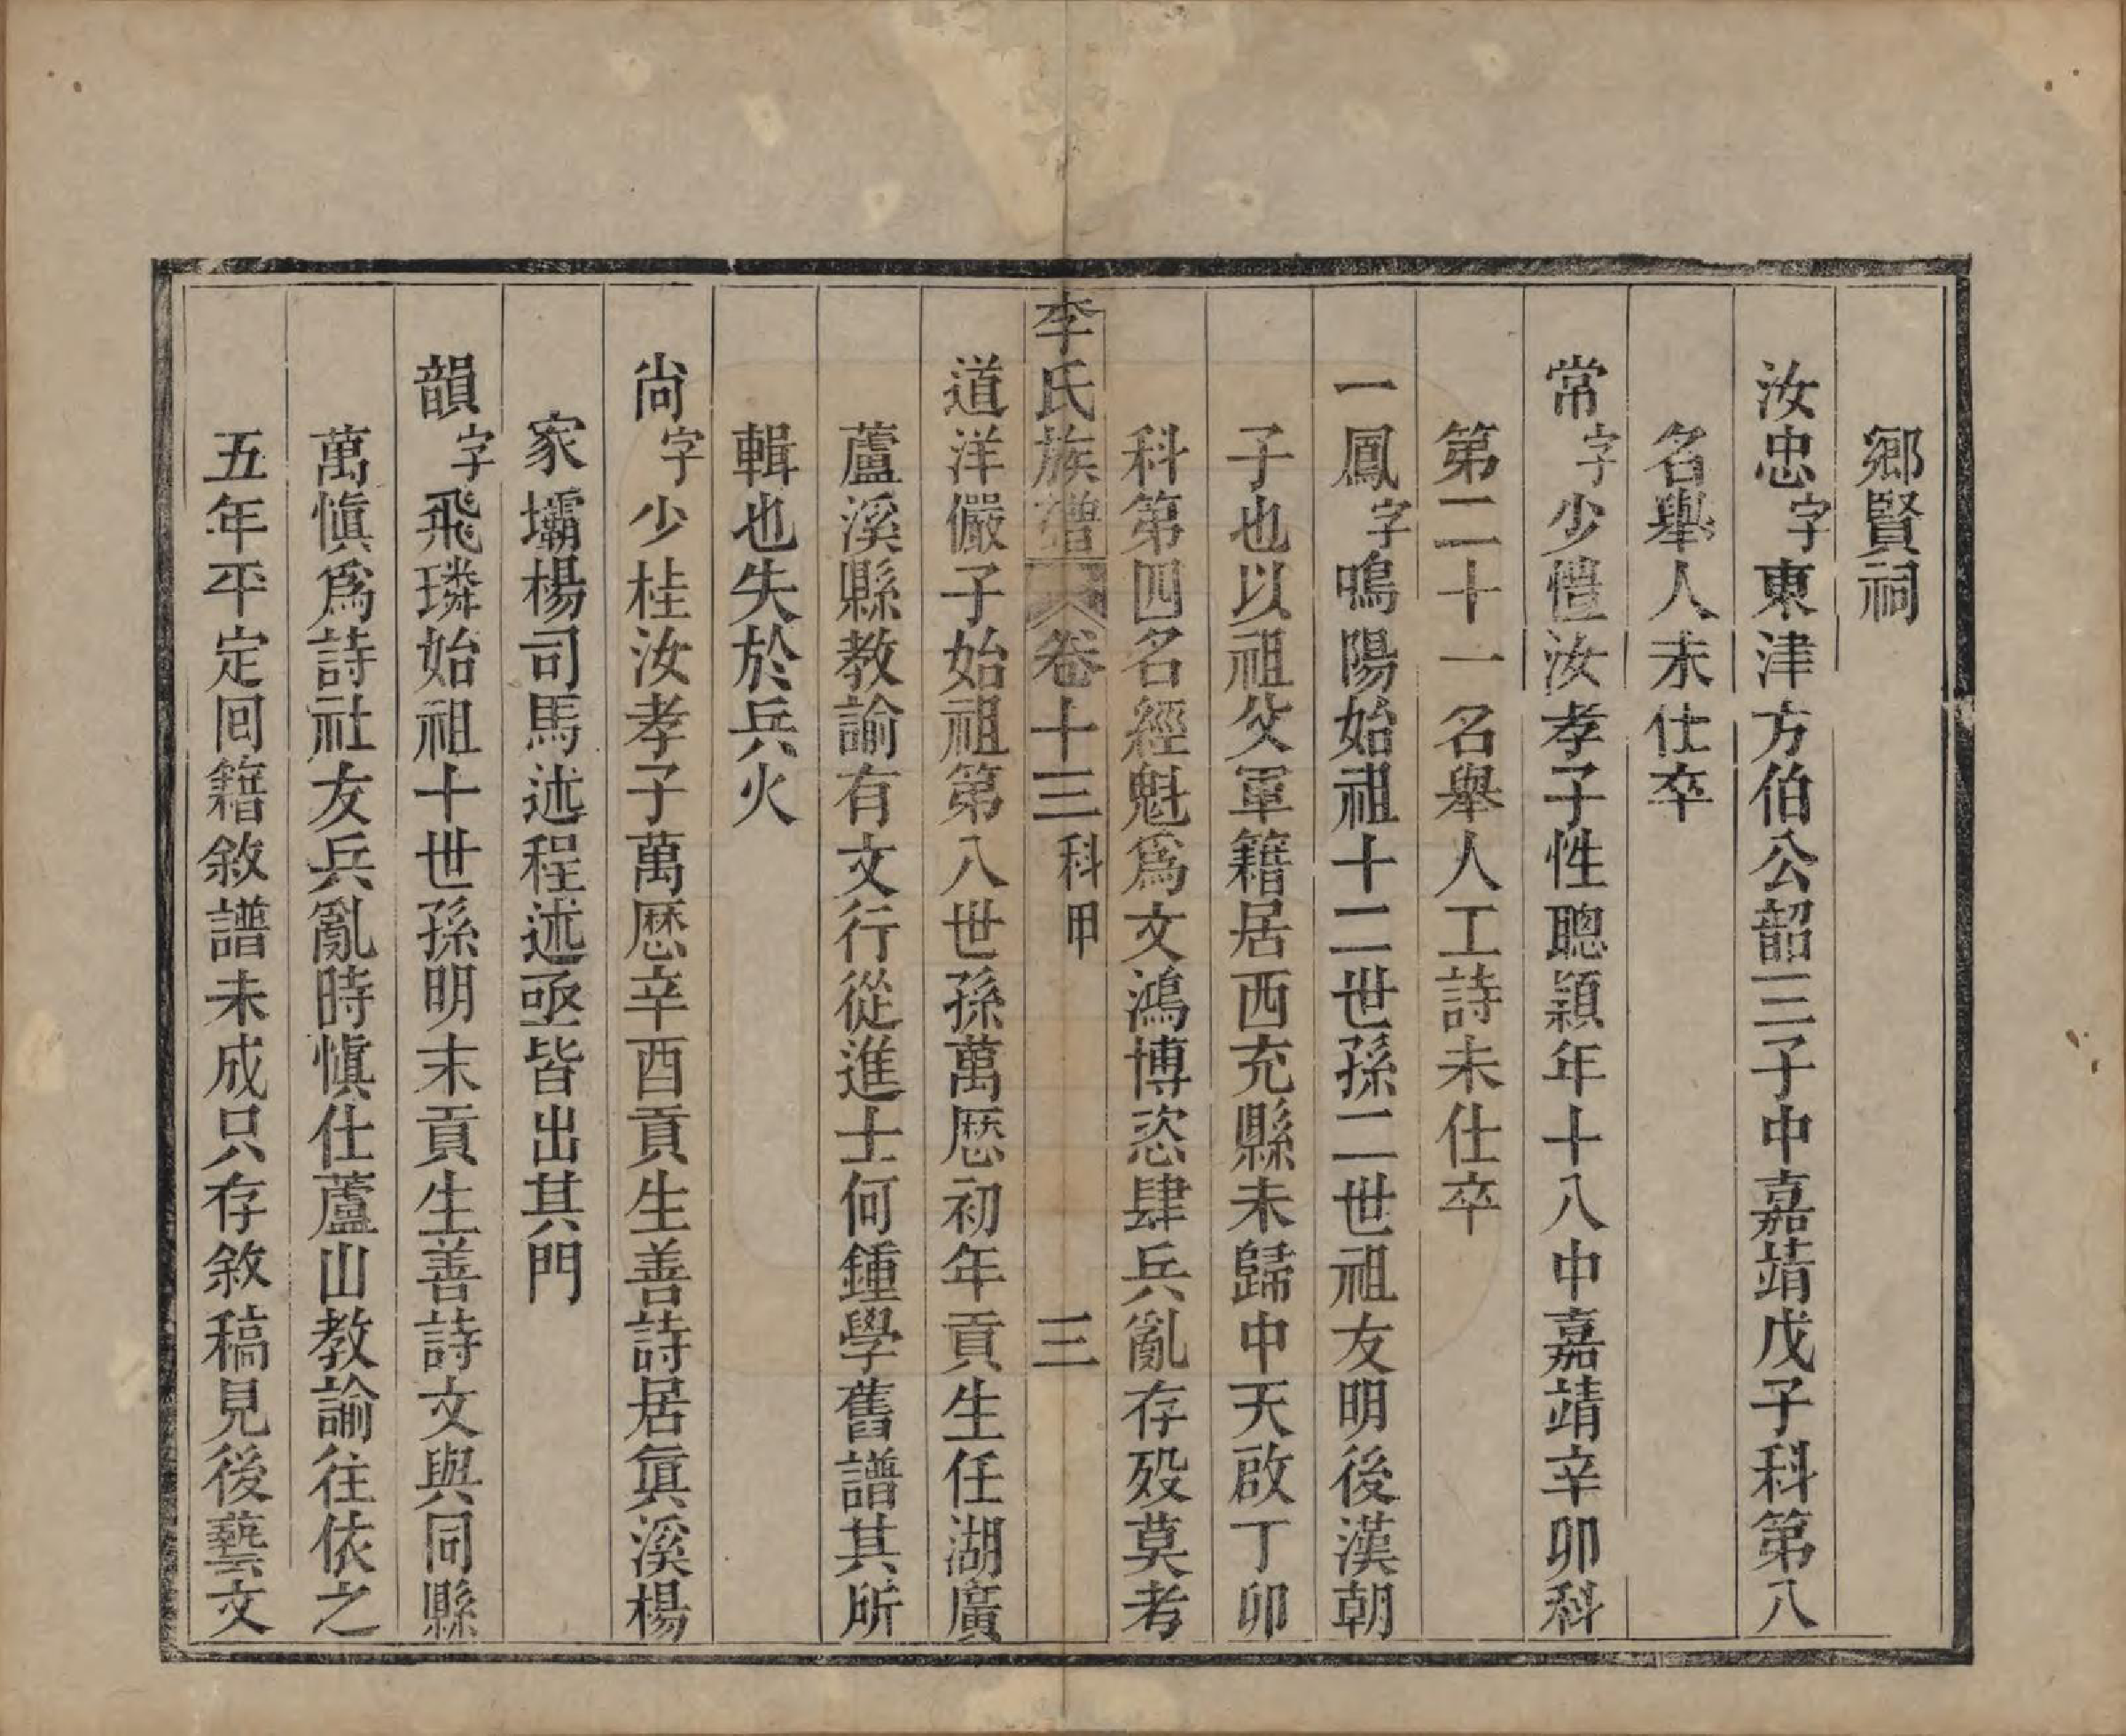 鄉賢祠
汝忠字東津方伯公韶三子中嘉靖戊子科第八
名舉人未仕卒
常字少愷汝孝子性聰穎年十八中嘉靖辛卯科
第二十一名舉人工詩未仕卒
一鳳字鳴陽始祖十二世孫二世祖友明後漢朝
子也以祖父軍籍居西充縣未歸中天啟丁卯
科第四名經魁爲文鴻博恣肆兵亂存歿莫考
李氏族譜 卷十三 科甲 三
道洋儼子始祖第八世孫萬歷初年貢生任湖廣
蘆溪縣教諭有文行從進士何鍾學舊譜其所
輯也失於兵火
尚字少桂汝孝子萬歷辛酉貢生善詩居眞溪楊
家壩楊司馬述程述亟皆出其門
韻字飛璘始祖十世孫明末貢生善詩文與同縣
萬愼爲詩社友兵亂時愼仕蘆山教諭往依之
五年平定囘籍敘譜未成只存敘稿見後藝文